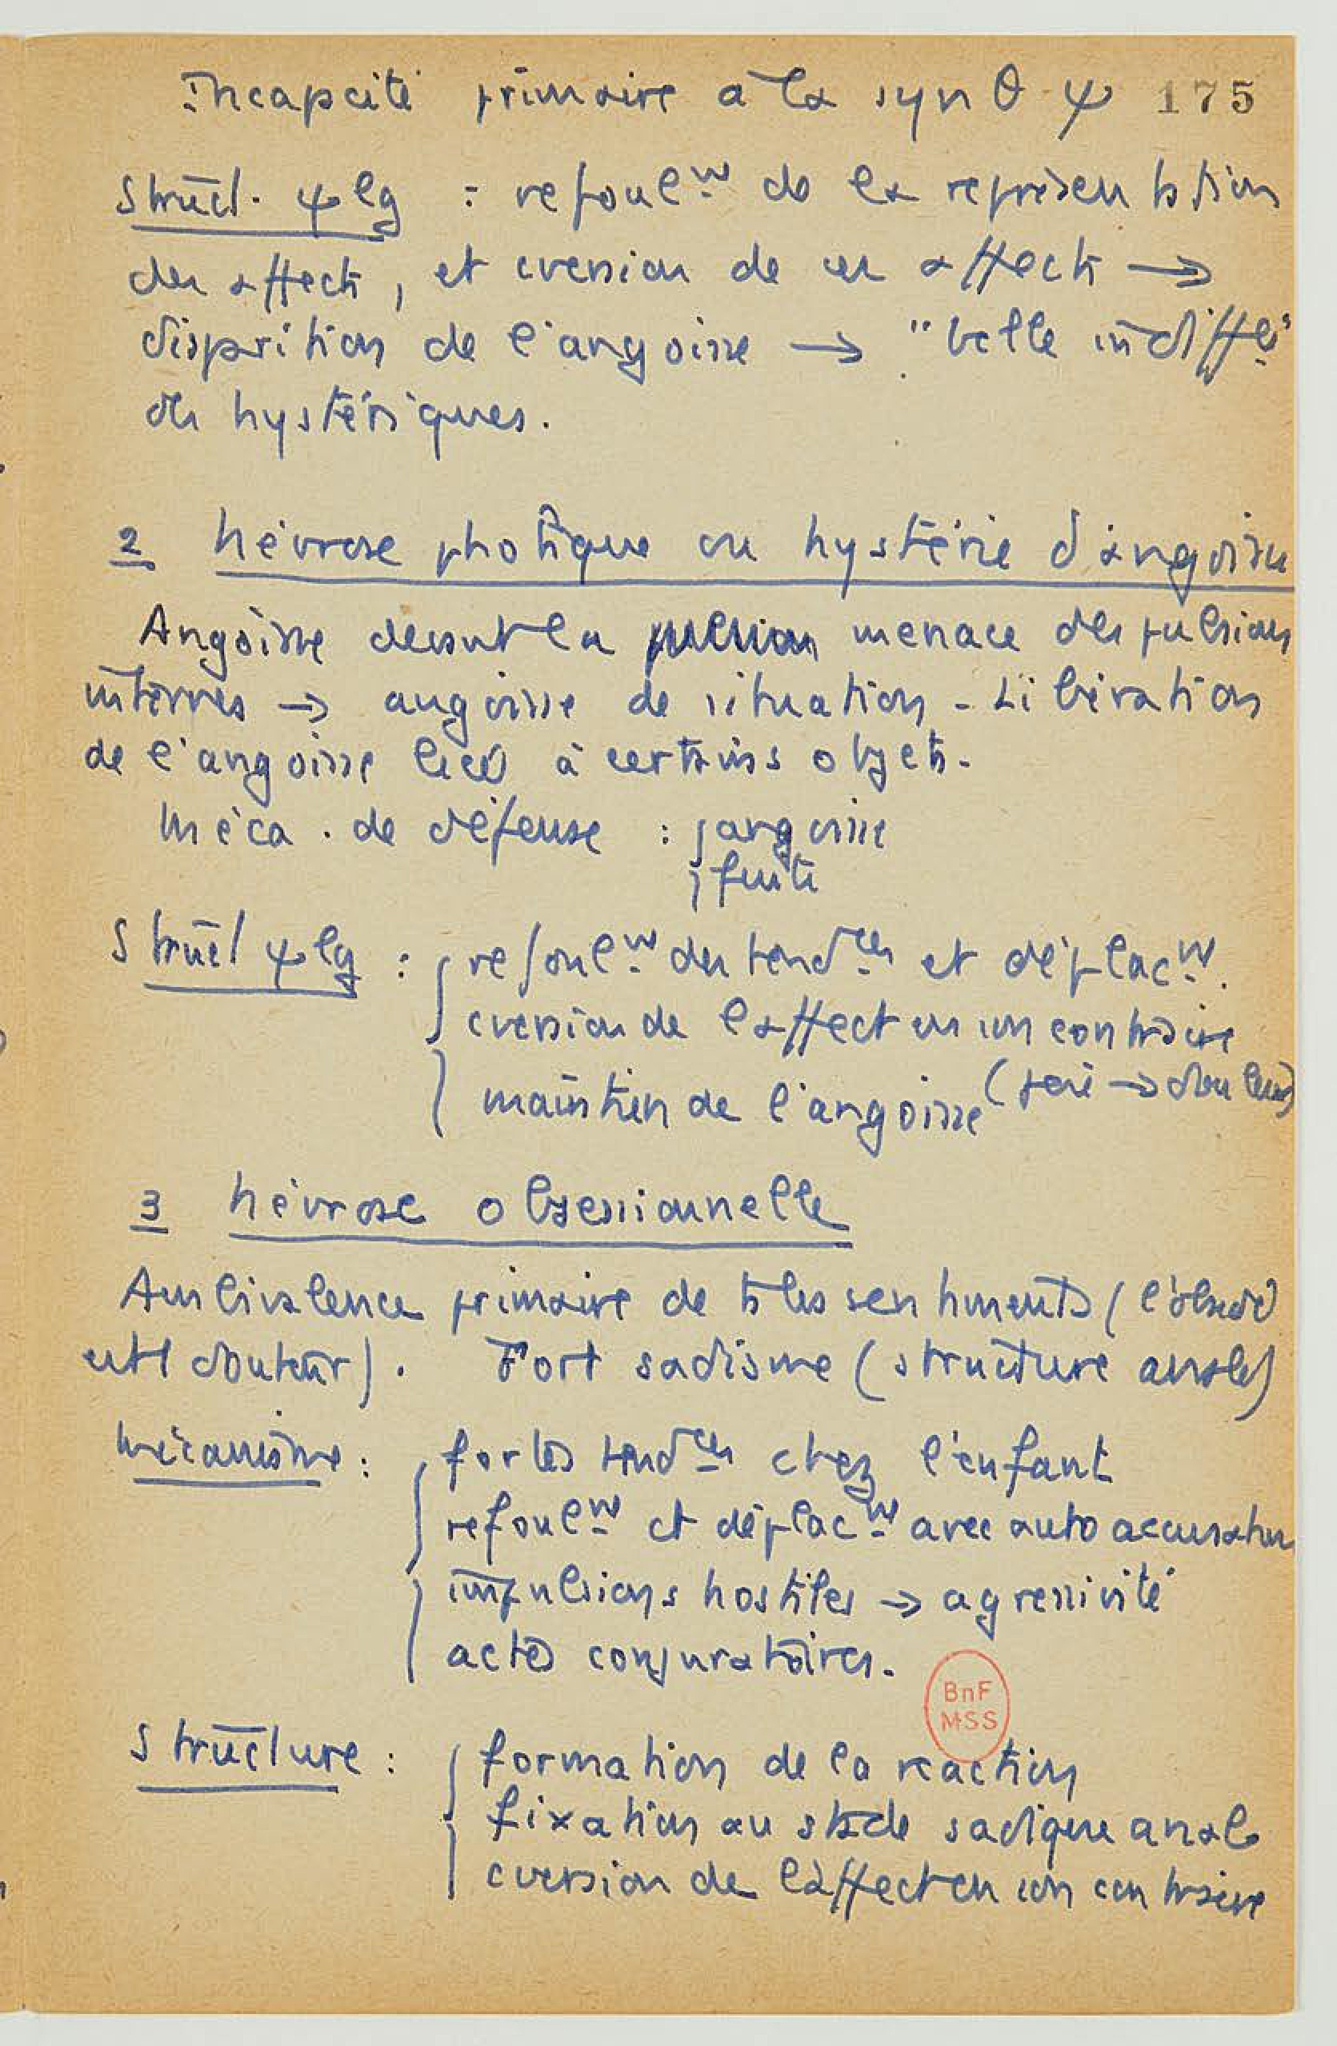 Incapcité primaire à la syn θ ψ 175
Struct. ψ lg : refoul^m de la représentation
des affects, et cversion de ces affects →
disprition de l'angoisse → "belle indiffce"
des hystériques.
2 Névrose phobique ou hystérie d'angoisse
Angoisse devant la pulsion menace des pulsions
internes → angoisse de situation - Libération
de l'angoisse liée à certains objets.
Méca. de défense : angoisse
fuite
Struct ψ lg : refoul^m des tend^ces et déplac^m.
cversion de l'affect en son contraire
maintien de l'angoisse (joie → douleur)
3 Névrose obsessionnelle
Ambivalence primaire de ts les sentiments (l'obsédé
est 1 douteur). Fort sadisme (structure anale)
Mécanisme : fortes tend^ces chez l'enfant
refoul^m et déplac^m avec auto accusation
impulsions hostiles → agressivité
actes conjuratoires.
BnF
MSS
Structure : formation de la réaction
fixation au stade sadique anal
cversion de l'affect en son contraire